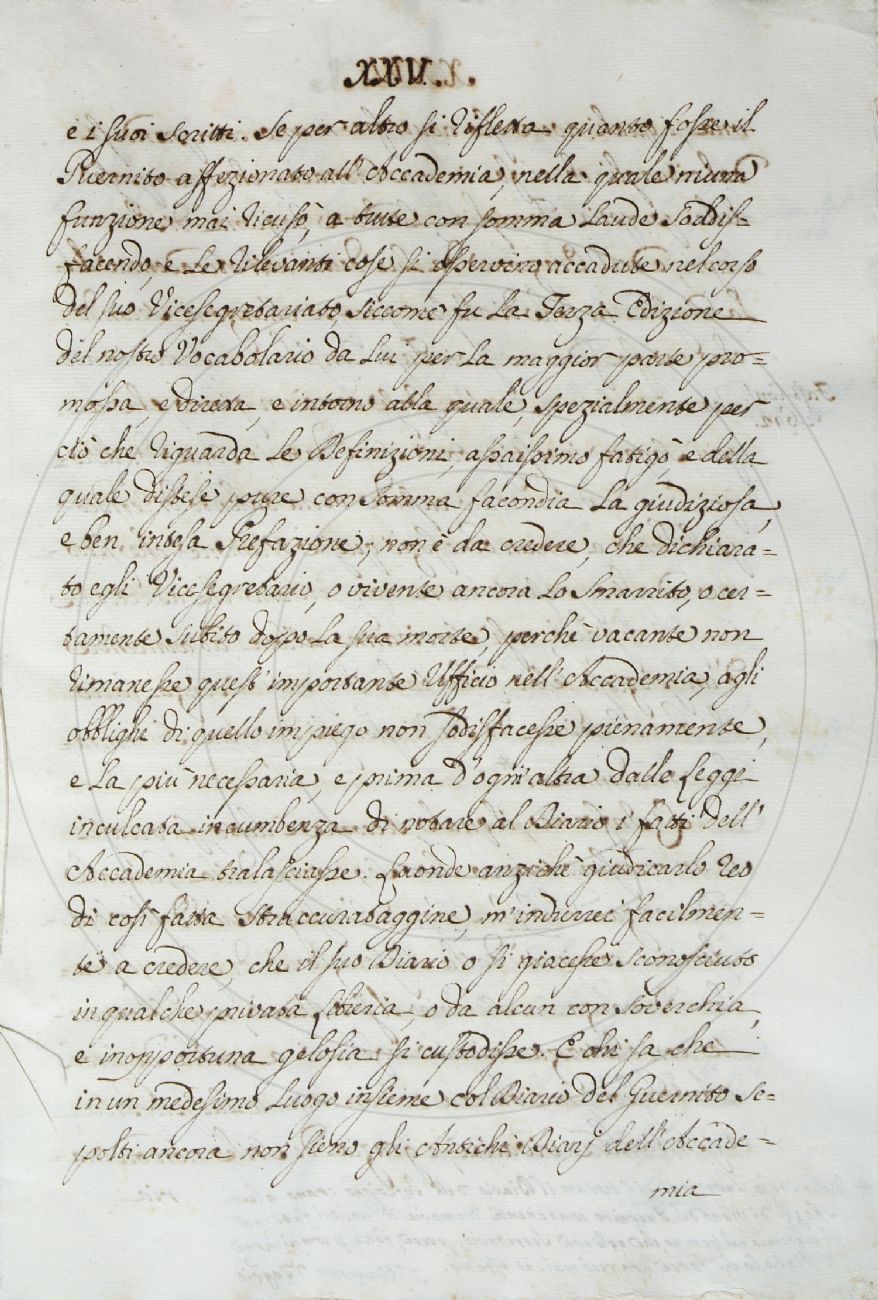 XXVI.
e i suoi scritti. Se per altro si rifletta quanto fosse il
Guernito affezionato all'Accademia, nella quale niuna
funzione mai ricusò, a tutte con somma laude soddis-
facendo, e le rilevanti cose si osservino accadute nel corso
del suo Vicesegretariato, siccome fu la Terza Edizione
del nostro Vocabolario da lui per la maggior parte pro-
mossa, e diretta, e intorno alla quale, spezialmente per
ciò che riguarda le Definizioni, assaissimo fatigò, e della
quale distese pure con somma facondia la giudiziosa,
e ben intesa Prefazione; non è da credere, che dichiara-
to egli Vicesegretario, o vivente ancora lo Smarrito, o cer-
tamente subito dopo la sua morte, perchè vacante non
rimanesse quest'importante Ufficio nell'Accademia, agli
obblighi di quello impiego non sodisfacesse pienamente,
e la più necessaria, e prima d'ogni altra dalle Leggi
inculcata incumbenza di notare al Diario i fatti dell'
Accademia tralasciasse. Laonde anzichè giudicarlo reo
di così fatta straccurataggine, m'indurrei facilmen-
te a credere, che il suo Diario o si giacesse sconosciuto
in qualche privata Libreria, o da alcun con soverchia,
e inopportuna gelosia si custodisse. E chi sa che
in un medesimo luogo insieme col Diario del Guernito se-
polti ancora non sieno gli Antichi Diarj dell'Accade-
mia